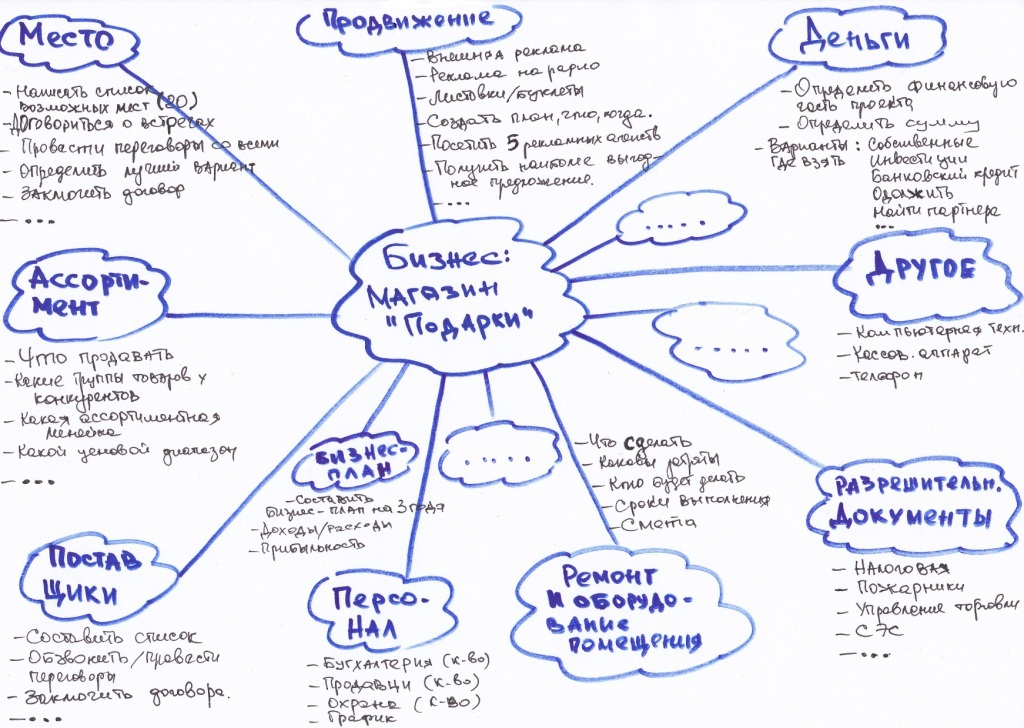 Бизнес:
магазин
"Подарки"
Место
- Написать список
возможных мест (20)
- Договориться о встречах
- Провести переговоры со всеми
- Определить лучший вариант
- Заключить договор
- ...
Продвижение
- Внешняя реклама
- Реклама на радио
- Листовки/буклеты
- Создать план, что, когда.
- Посетить 5 рекламных агенств
- Получить наиболе выгод-
ное предложение.
- ...
Деньги
- Определить финансовую
часть проекта
- Определить сумму
- Варианты: Собственные
где взять Инвестиции
Банковский кредит
Одолжить
Найти партнера
...
.....
Другое
- Компьютерная техн.
- Кассов. аппарат
- телефон
.....
Ассорти-
мент
- Что продавать
- Какие группы товаров у
конкурентов
- Какая ассортиментная
линейка
- Какой ценовой диапазон
- ...
Бизнес-
план
- Составить
бизнес-план на 3 года
- Доходы/расходы
- Прибыльность
.....
- Что сделать
- Каковы затраты
- Кто будет делать
- Сроки выполнения
- Смета
Ремонт
и оборудо-
вание
помещения
Разрешительн.
документы
- Налоговая
- Пожарники
- Управление торговли
- СЭС
- ...
Постав
щики
- Составить список
- Обзвонить/провести
переговоры
- Заключить договора.
- ...
Персо-
нал
- Бугхалтерия (к-во)
- Продавци (к-во)
- Охрана (к-во)
- График